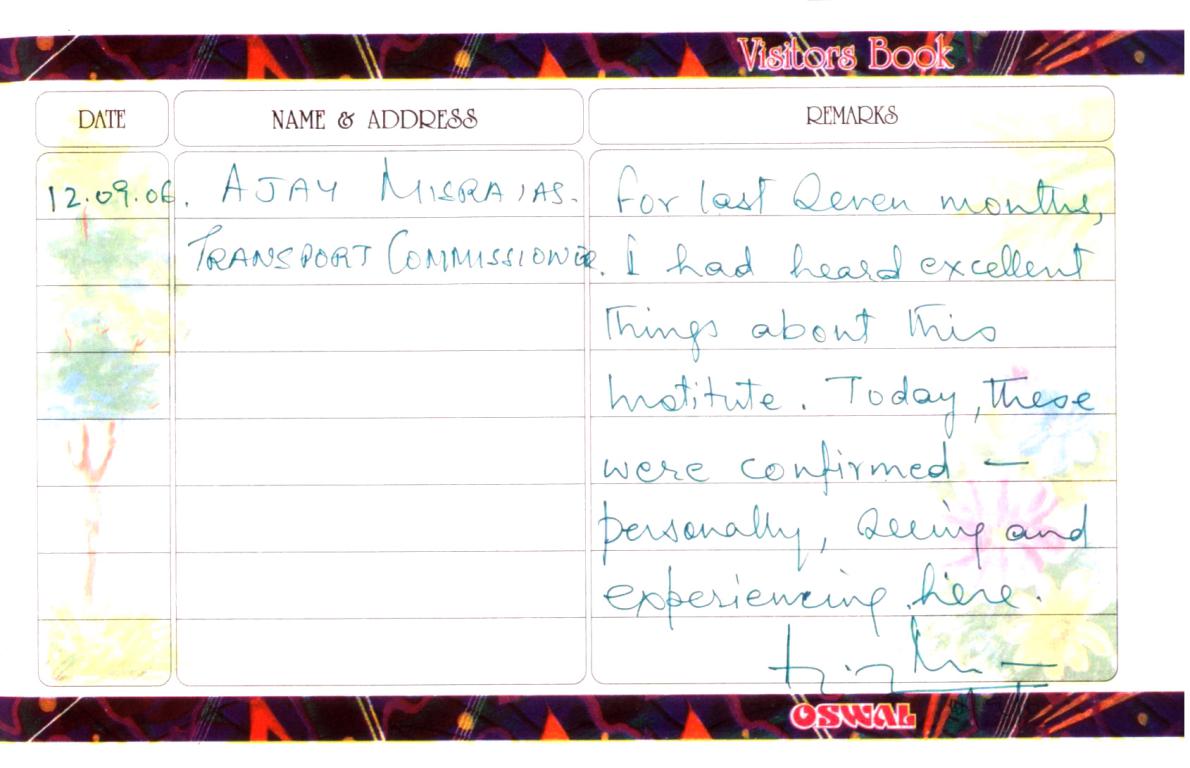 Visitors Book
DATE NAME & ADDRESS REMARKS
12.09.06. AJAY MISRA IAS. For last seven months,
TRANSPORT COMMISSIONER. I had heard excellent
things about this
Institute. Today, these
were confirmed —
personally, seeing and
experiencing here.
OSWAL